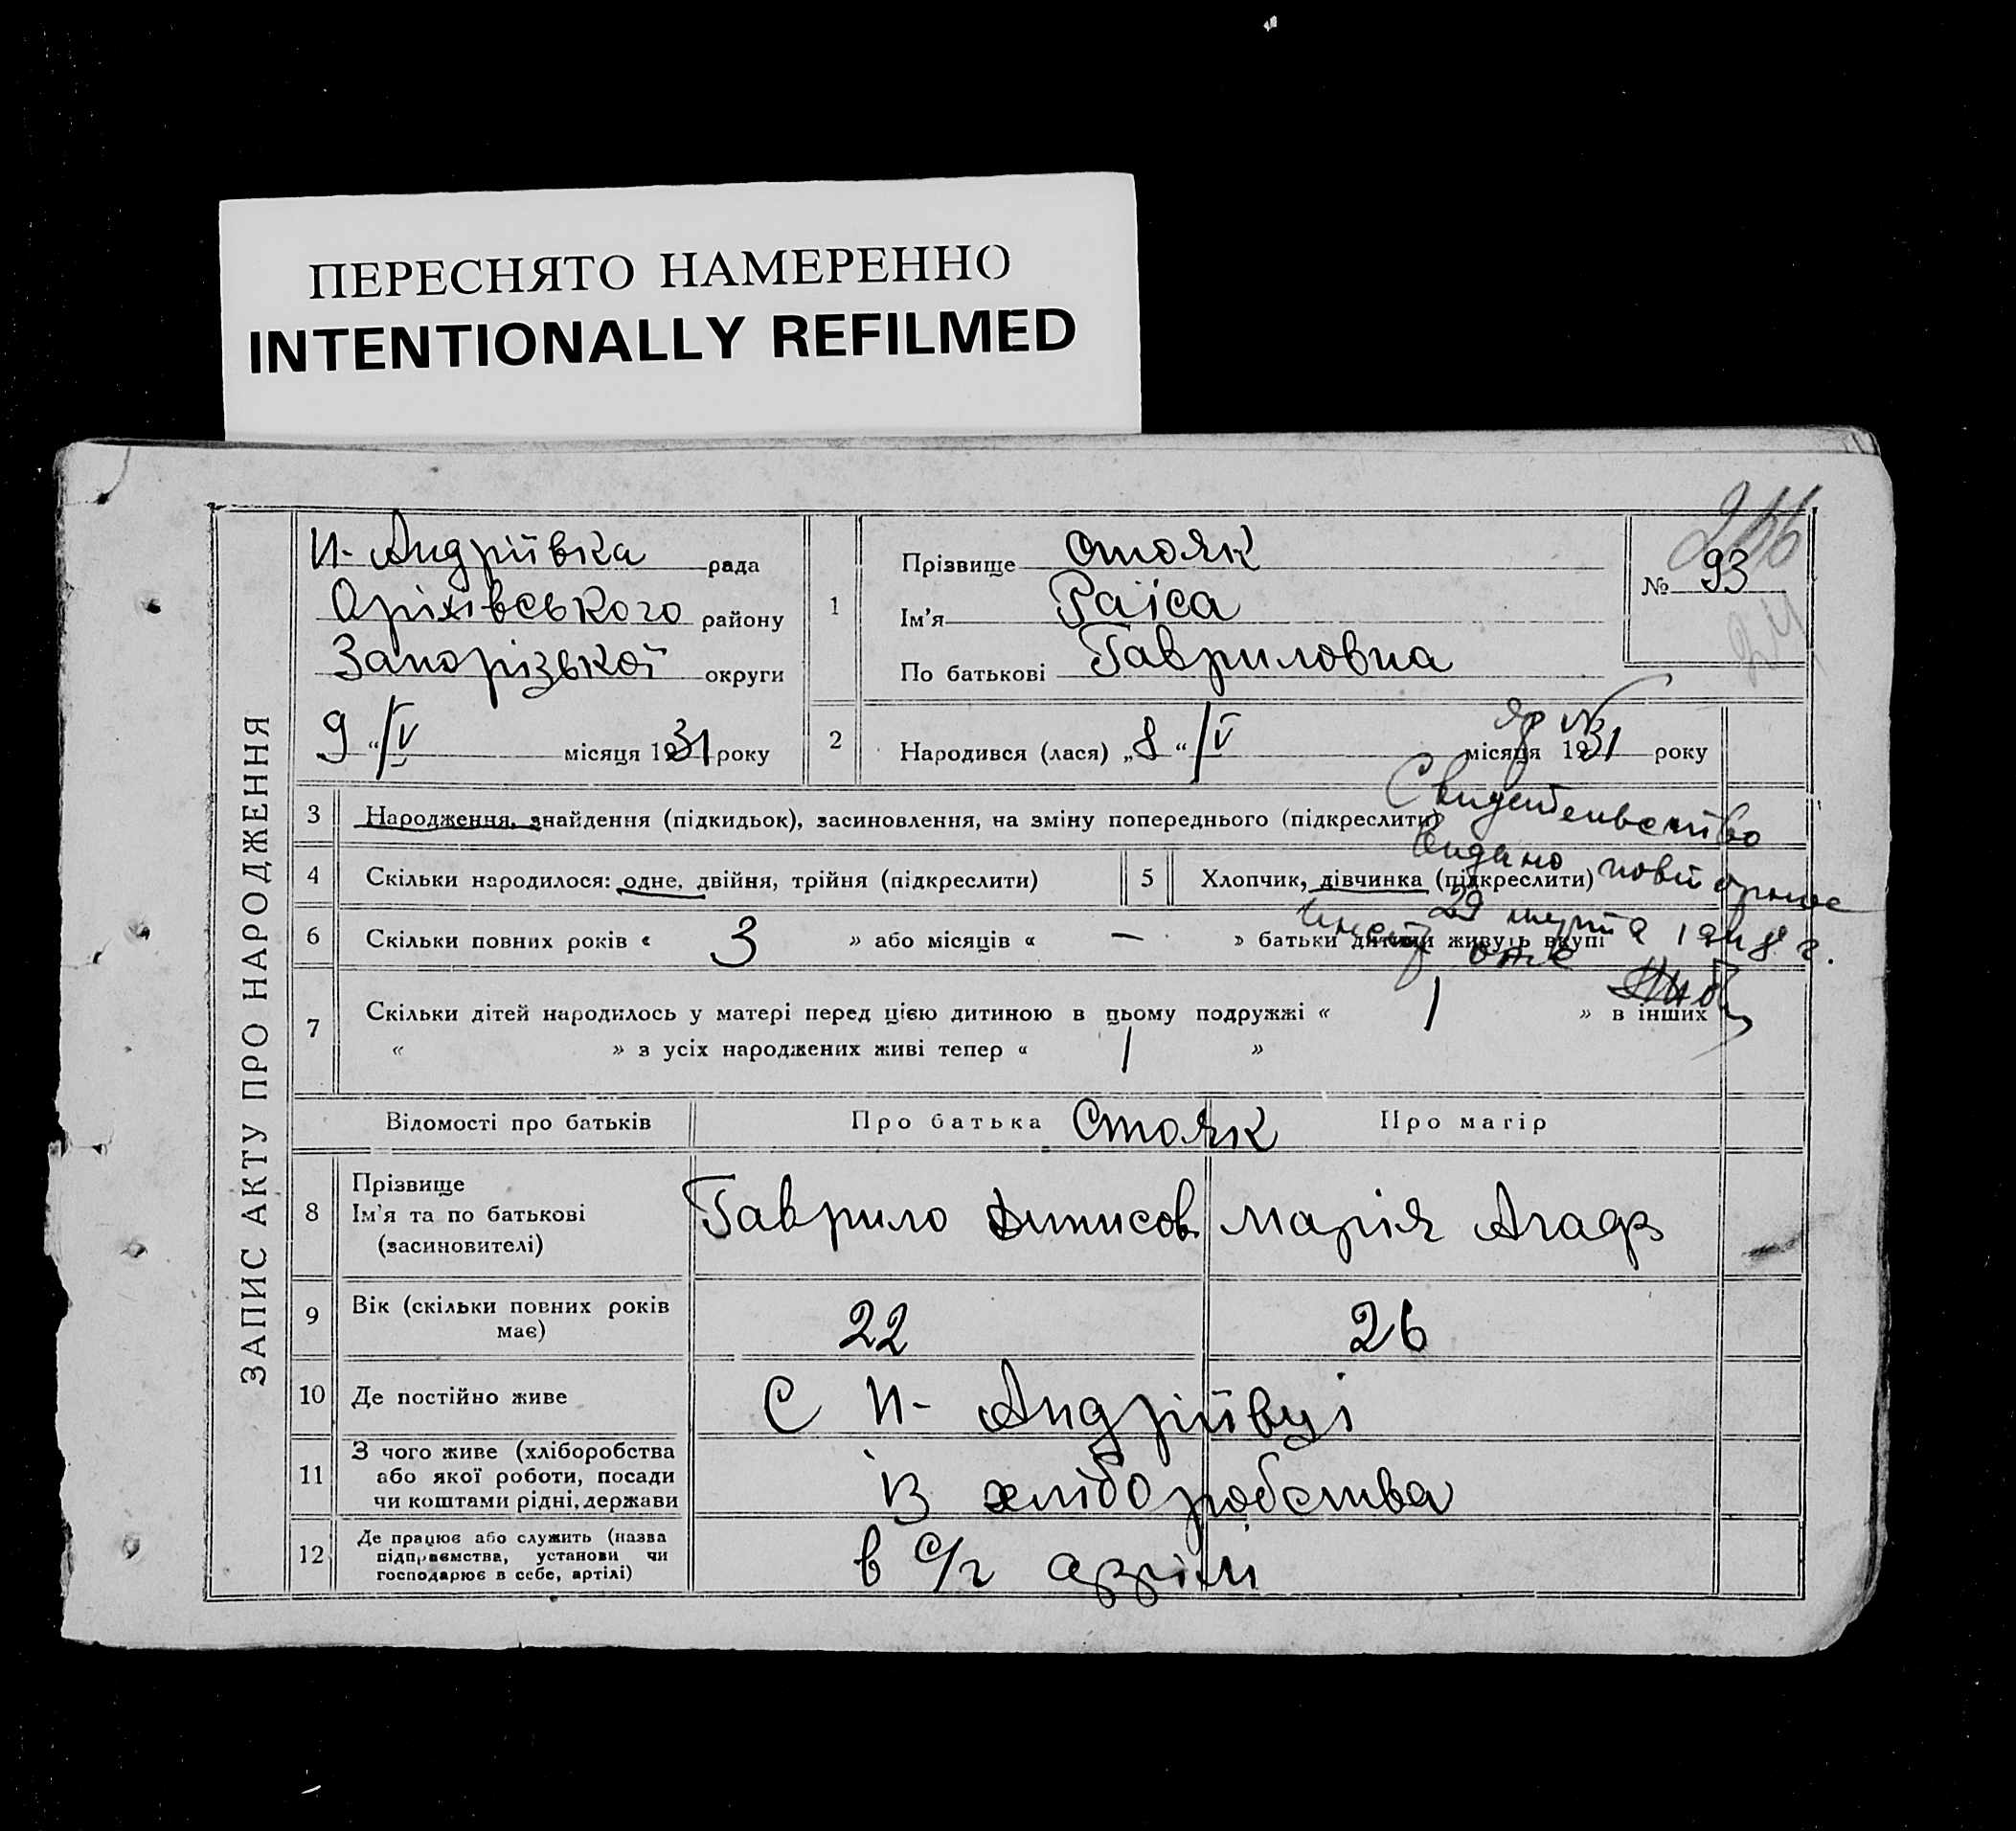 ПЕРЕСНЯТО НАМЕРЕННО
INTENTIONALLY REFILMED
ЗАПИС АКТУ ПРО НАРОДЖЕННЯ
Н- Андріївка рада
Оріхівського району
Запорізької округи
9 "/V місяця 1931 року
1
Прізвище Стояк
Ім'я Раїса
По батькові Гавриловна
№ 93
2 Народився (лася) „8 “ /V місяця 1931 року
3 Народження, знайдення (підкидьок), засиновлення, на зміну попереднього (підкреслити)
Свидетельство
видано
4 Скільки народилося: одне, двійня, трійня (підкреслити) 5 Хлопчик, дівчинка (підкреслити)
29 марта 1948 г.
6 Скільки повних років « 3 » або місяців « — » батьки дитини живуть вкупі
7 Скільки дітей народилось у матері перед цією дитиною в цьому подружжі « 1 » в інших
« » з усіх народжених живі тепер « 1 »
Відомості про батьків Про батька Стояк Про матір
8 Прізвище
Ім'я та по батькові
(засиновителі)
Гаврило Динисов. Марія Агаф
9 Вік (скільки повних років
має)
22 26
10 Де постійно живе С Н- Андріївці
11 З чого живе (хліборобства
або якої роботи, посади
чи коштами рідні, держави
із хліборобства
12 Де працює або служить (назва
підприємства, установи чи
господарює в себе, артілі)
в с/г артілі